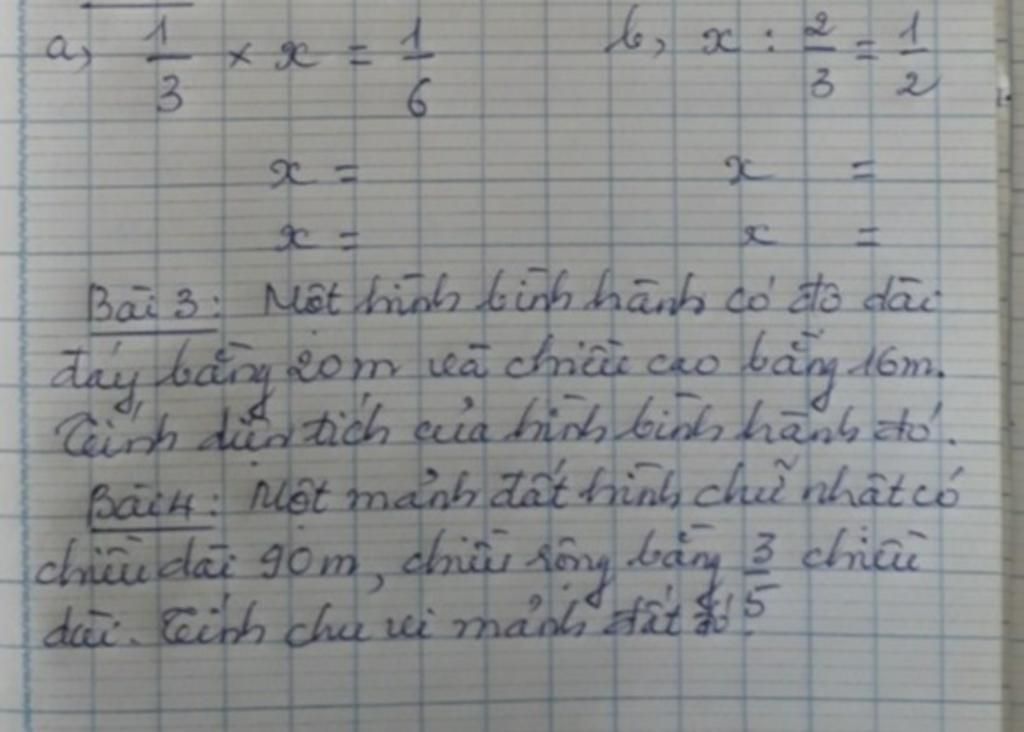 a, 1/3 × x = 1/6 b, x : 2/3 = 1/2
x = x =
x = x =
Bài 3: Một hình bình hành có độ dài
đáy bằng 20m và chiều cao bằng 16m.
Tính diện tích của hình bình hành đó.
Bài 4: Một mảnh đất hình chữ nhật có
chiều dài 90m, chiều rộng bằng 3/5 chiều
dài. Tính chu vi mảnh đất đó.